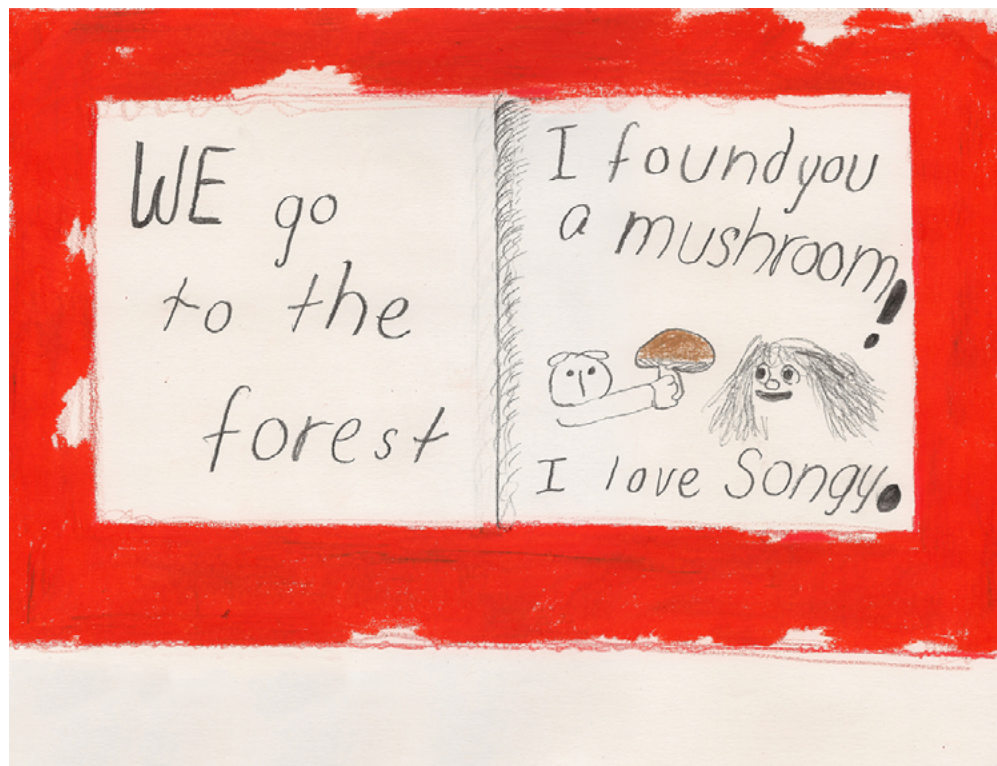 WE go
to the
forest
I found you
a mushroom!
I love Songy.